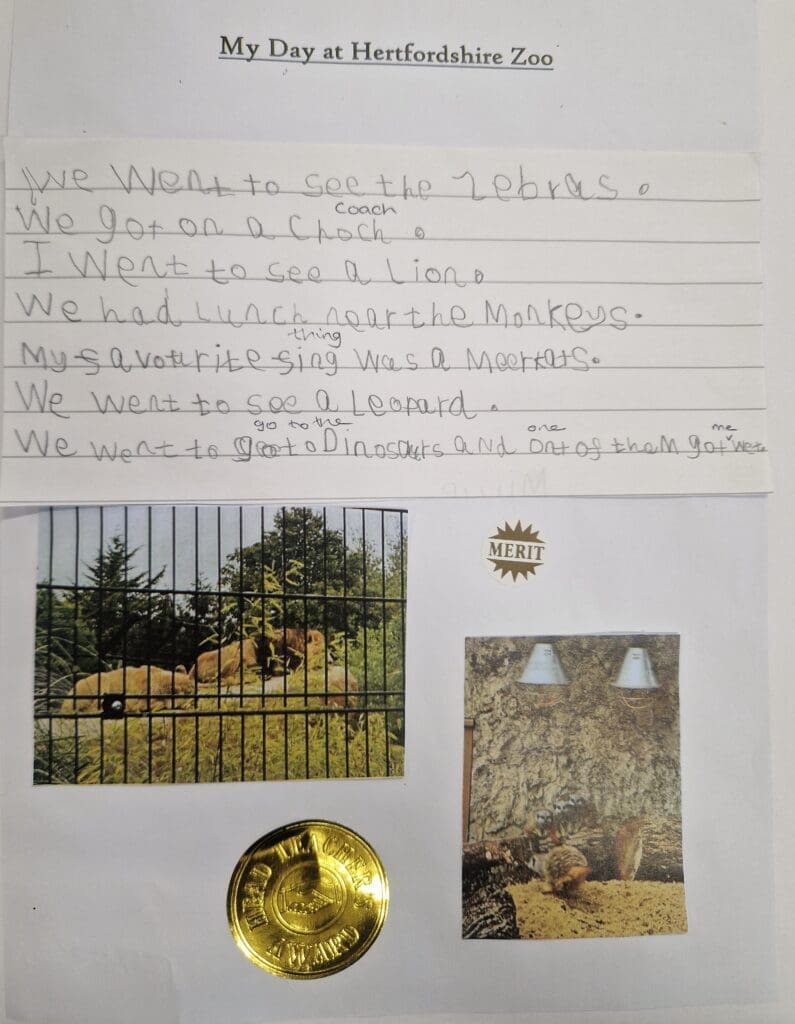 My Day at Hertfordshire Zoo
We went to see the zebras.
coach
We got on a Choch.
I went to see a Lion.
We had Lunch near the Monkeys.
thing
My favourite sing was a Meerkats.
We went to see a Leopard.
go to the one me
We went to to Dinosaurs and of them got wet
MERIT
HEAD TEACHER'S
AWARD